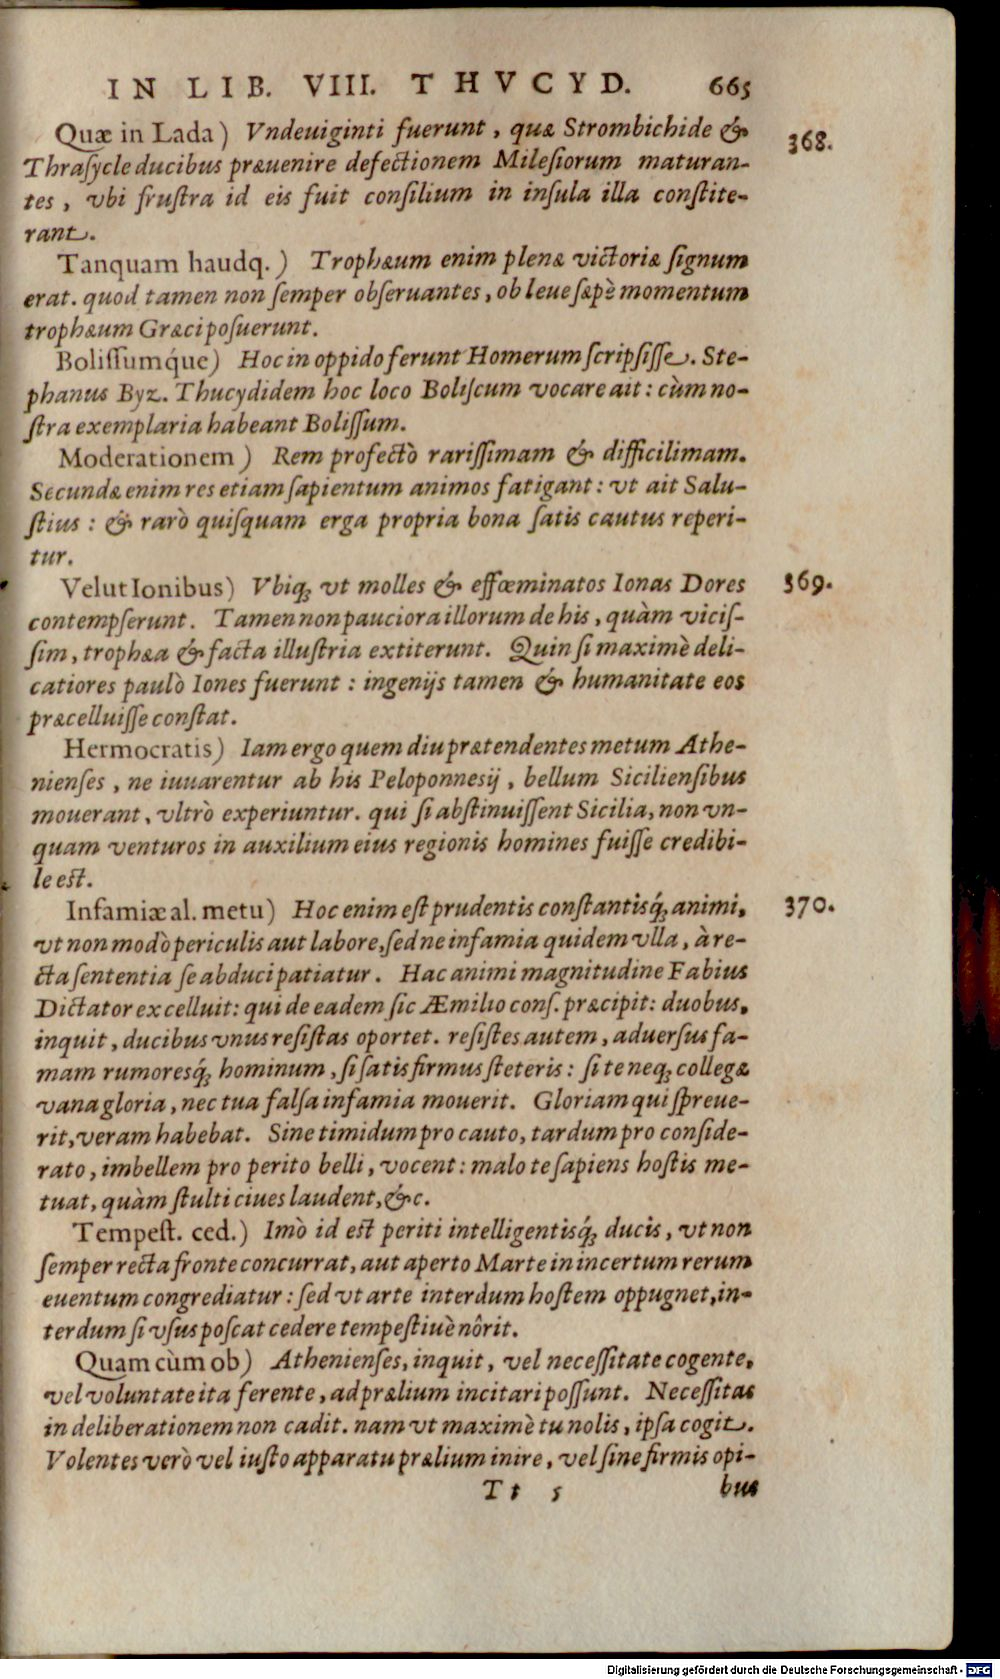 IN LIB. VIII. THVCYD. 665
Quæ in Lada) Vndeuiginti fuerunt, quæ Strombichide &
368.
Thraſycle ducibus præuenire defectionem Mileſiorum maturan-
tes, vbi fruſtra id eis fuit conſilium in inſula illa conſtite-
rant.
Tanquam haudq.) Trophæum enim plenæ victoriæ ſignum
erat. quod tamen non ſemper obſeruantes, ob leue ſæpè momentum
trophæum Græci poſuerunt.
Boliſſumq́ue) Hoc in oppido ferunt Homerum ſcripſiſſe. Ste-
phanus Byz. Thucydidem hoc loco Boliſcum vocare ait: cùm no-
ſtra exemplaria habeant Boliſſum.
Moderationem) Rem profectò rariſſimam & difficilimam.
Secundæ enim res etiam ſapientum animos fatigant: vt ait Salu-
ſtius: & rarò quiſquam erga propria bona ſatis cautus reperi-
tur.
Velut Ionibus) Vbiq; vt molles & effœminatos Ionas Dores
369.
contempſerunt. Tamen non pauciora illorum de his, quàm viciſ-
ſim, trophæa & facta illuſtria extiterunt. Quin ſi maximè deli-
catiores paulò Iones fuerunt: ingenijs tamen & humanitate eos
præcelluiſſe conſtat.
Hermocratis) Iam ergo quem diu prætendentes metum Athe-
nienſes, ne iuuarentur ab his Peloponnesij, bellum Sicilienſibus
mouerant, vltrò experiuntur. qui ſi abſtinuiſſent Sicilia, non vn-
quam venturos in auxilium eius regionis homines fuiſſe credibi-
le eſt.
Infamiæ al. metu) Hoc enim eſt prudentis conſtantisq́; animi,
370.
vt non modò periculis aut labore, ſed ne infamia quidem vlla, à re-
cta ſententia ſe abduci patiatur. Hac animi magnitudine Fabius
Dictator excelluit: qui de eadem ſic Æmilio conſ. præcipit: duobus,
inquit, ducibus vnus reſiſtas oportet. reſiſtes autem, aduerſus fa-
mam rumoresq́; hominum, ſi ſatis firmus ſteteris: ſi te neq; collegæ
vana gloria, nec tua falſa infamia mouerit. Gloriam qui ſpreue-
rit, veram habebat. Sine timidum pro cauto, tardum pro conſide-
rato, imbellem pro perito belli, vocent: malo te ſapiens hoſtis me-
tuat, quàm ſtulti ciues laudent, &c.
Tempeſt. ced.) Imò id eſt periti intelligentisq́; ducis, vt non
ſemper recta fronte concurrat, aut aperto Marte in incertum rerum
euentum congrediatur: ſed vt arte interdum hoſtem oppugnet, in-
terdum ſi vſus poſcat cedere tempeſtiuè nôrit.
Quam cùm ob) Athenienſes, inquit, vel neceſſitate cogente,
vel voluntate ita ferente, ad prælium incitari poſſunt. Neceſſitas
in deliberationem non cadit. nam vt maximè tu nolis, ipſa cogit.
Volentes verò vel iuſto apparatu prælium inire, vel ſine firmis opi-
Tt 5 bus
Digitalisierung gefördert durch die Deutsche Forschungsgemeinschaft - DFG